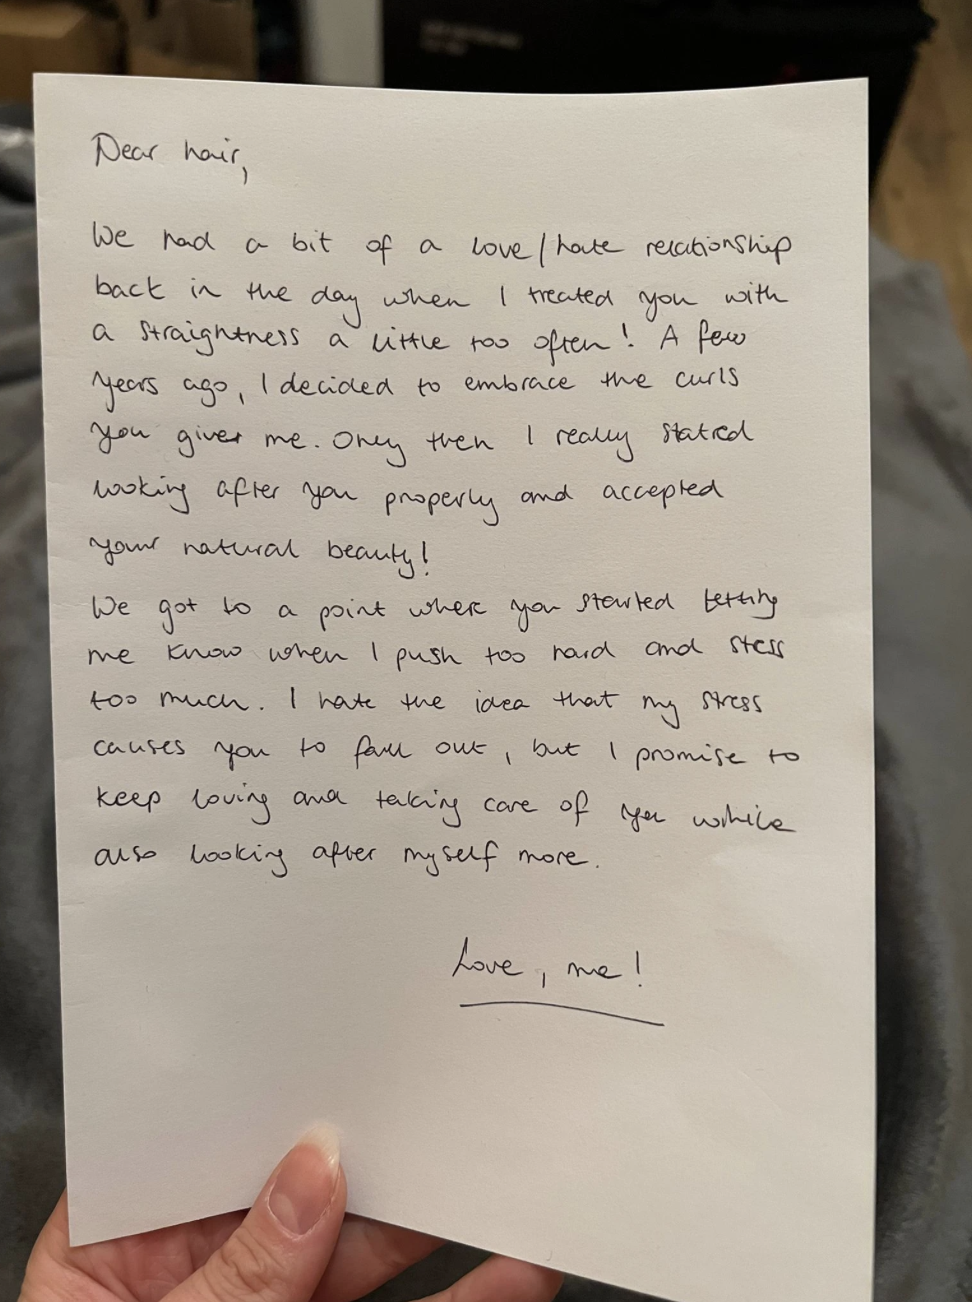 Dear hair,
We had a bit of a love/hate relationship
back in the day when I treated you with
a straightness a little too often! A few
years ago, I decided to embrace the curls
you gives me. Only then I really statred
looking after you properly and accepted
your natural beauty!
We got to a point where you started letting
me know when I push too hard and stess
too much. I hate the idea that my stress
causes you to fall out, but I promise to
keep loving and taking care of you while
also looking after myself more.
Love, me!